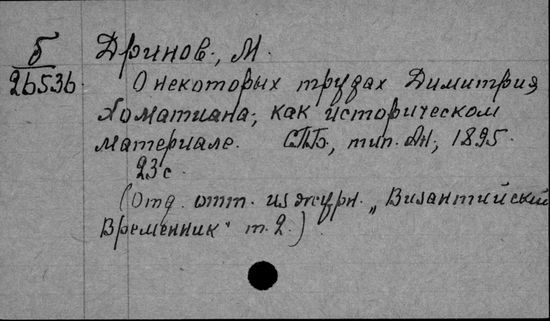 Б
26536
Дринов, М.
О некоторых трудах Димитрия
Хоматиана, как историческом
материале. СПБ, тип. АН, 1895.
23 с.
(Отд. отт. из журн. „Византийский
Временник" т. 2.)